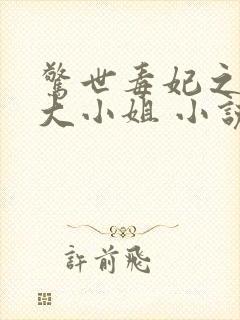 驚世毒妃之
大小姐 小說
許前飛